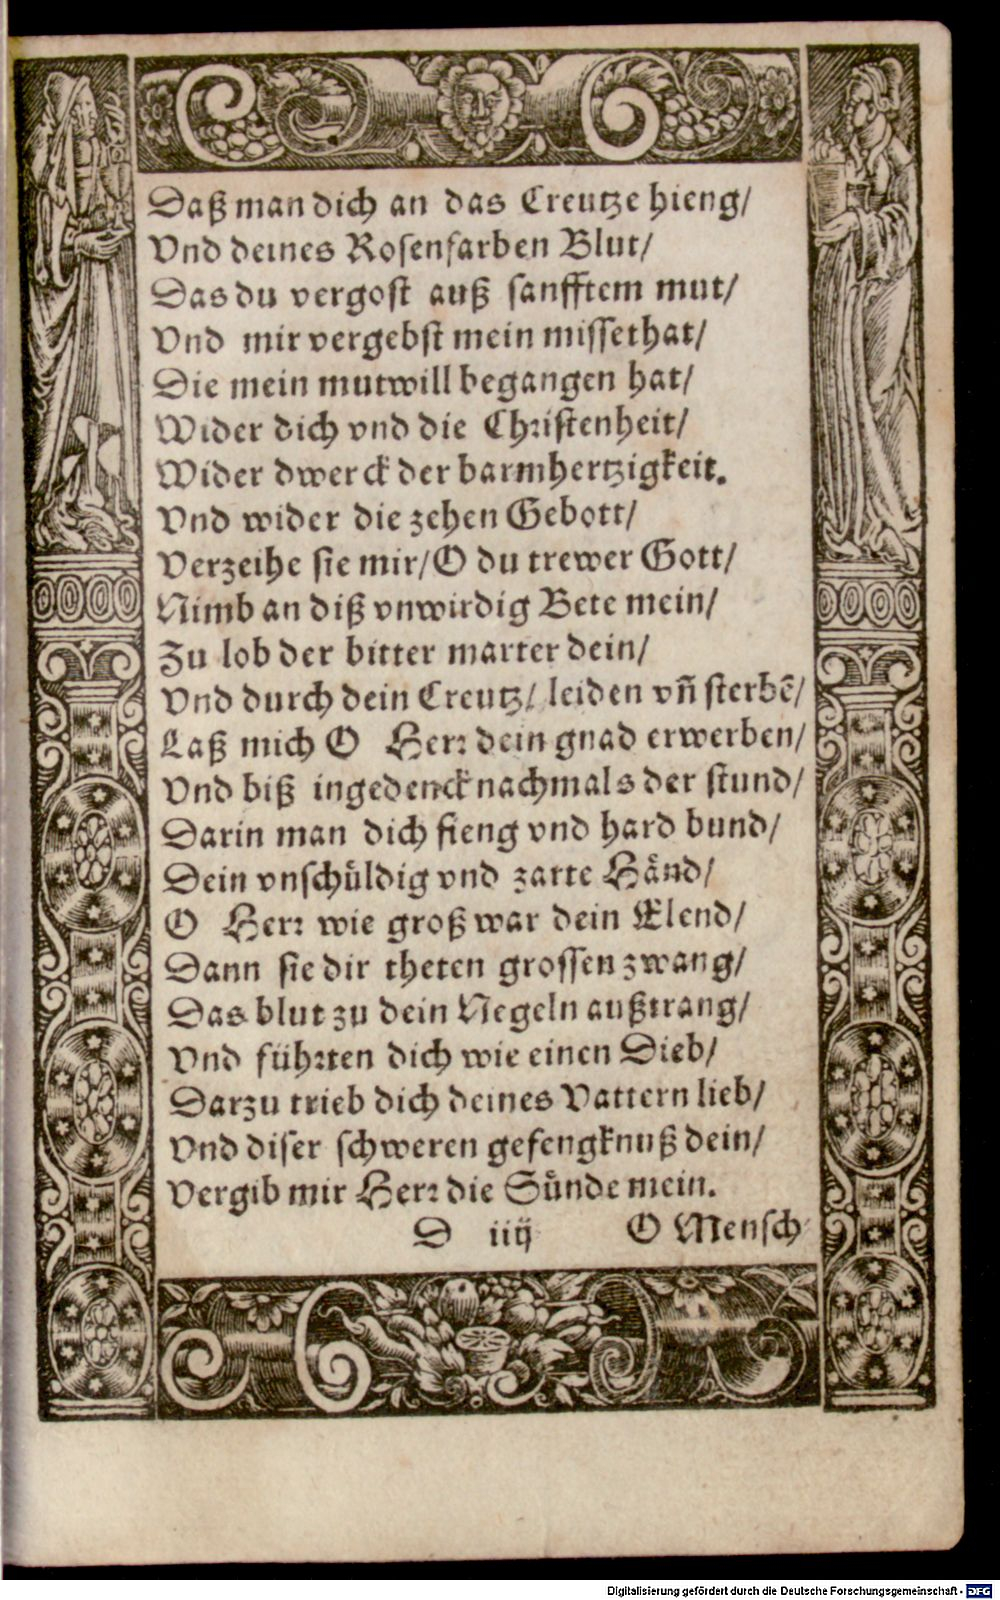 Daß man dich an das Creutze hieng/
Vnd deines Rosenfarben Blut/
Das du vergost auß sanfftem mut/
Vnd mir vergebst mein missethat/
Die mein mutwill begangen hat/
Wider dich vnd die Christenheit/
Wider dwerck der barmhertzigkeit.
Vnd wider die zehen Gebott/
Verzeihe sie mir/ O du trewer Gott/
Nimb an diß vnwirdig Bete mein/
Zu lob der bitter marter dein/
Vnd durch dein Creutz/ leiden vñ sterbẽ/
Laß mich O Herr dein gnad erwerben/
Vnd biß ingedenck nachmals der stund/
Darin man dich fieng vnd hard bund/
Dein vnschuͤldig vnd zarte Haͤnd/
O Herr wie groß war dein Elend/
Dann sie dir theten grossen zwang/
Das blut zu dein Negeln außtrang/
Vnd fuͤhrten dich wie einen Dieb/
Darzu trieb dich deines Vattern lieb/
Vnd diser schweren gefengknuß dein/
Vergib mir Herr die Suͤnde mein.
D iiij O Mensch
Digitalisierung gefördert durch die Deutsche Forschungsgemeinschaft - DFG